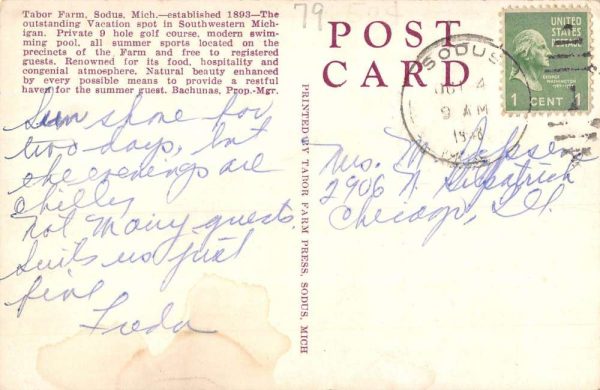 Tabor Farm, Sodus, Mich.—established 1893—The
outstanding Vacation spot in Southwestern Mich-
igan. Private 9 hole golf course, modern swim-
ming pool, all summer sports located on the
precincts of the Farm and free to registered
guests. Renowned for its food, hospitality and
congenial atmosphere. Natural beauty enhanced
by every possible means to provide a restful
haven for the summer guest. Bachunas, Prop.-Mgr.
Sun shone for
two days, but
the evenings are
chilly
not many guests.
Suits us just
fine
Freda
PRINTED BY TABOR FARM PRESS, SODUS, MICH
79
POST
CARD
SODUS
4
9 AM
UNITED
STATES
POSTAGE
1 CENT 1
Mrs. M.
2906 N. Kilpatrick
Chicago, Ill.